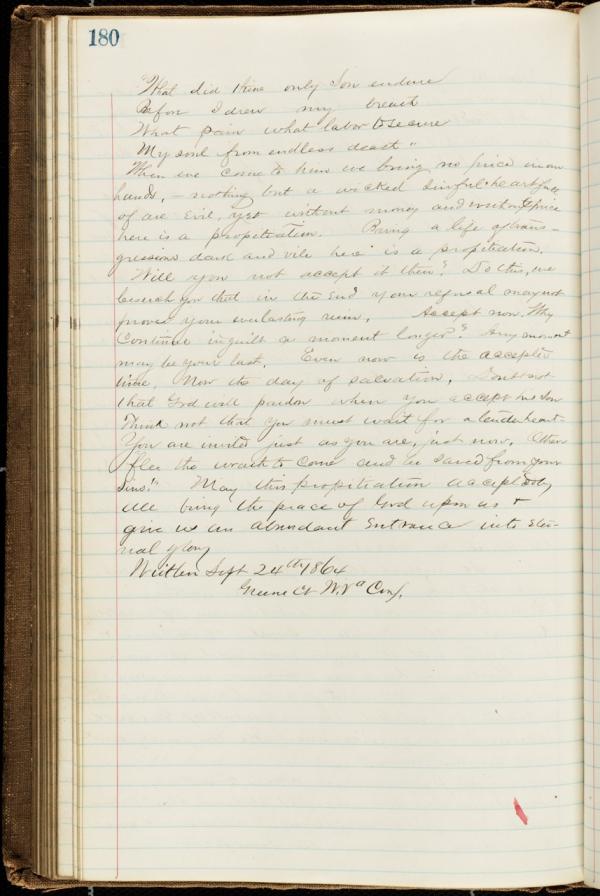 180
"What did thine only Son endure
Before I drew my breath
What pain what labor to secure
My soul from endless death"
When we come to him we bring no price in our
hands, – nothing but a wicked sinful heart full
of all evil, yet without money and without price
here is a propitiation. Bring a life of trans-
gressions dark and vile here is a propitiation.
Will you not accept it then? Do this, we
beseech you that in the End your refusal may not
prove your everlasting ruin. Accept now. Why
Continue in guilt a moment longer? Any moment
may be your last. Even now is the accepted
time. Now the day of salvation. Doubt not
that God will pardon when you accept his Son
Think not that you must wait for a tender heart.
You are invited just as you are, just now. O then
flee the wrath to come and be saved from your
Sins!" May this propitiation accepted by
all bring the peace of God upon us &
give us an abundant Entrance into Eter-
nal glory
Written Sept 24th 1864
Greene Ct W. Va Conf.